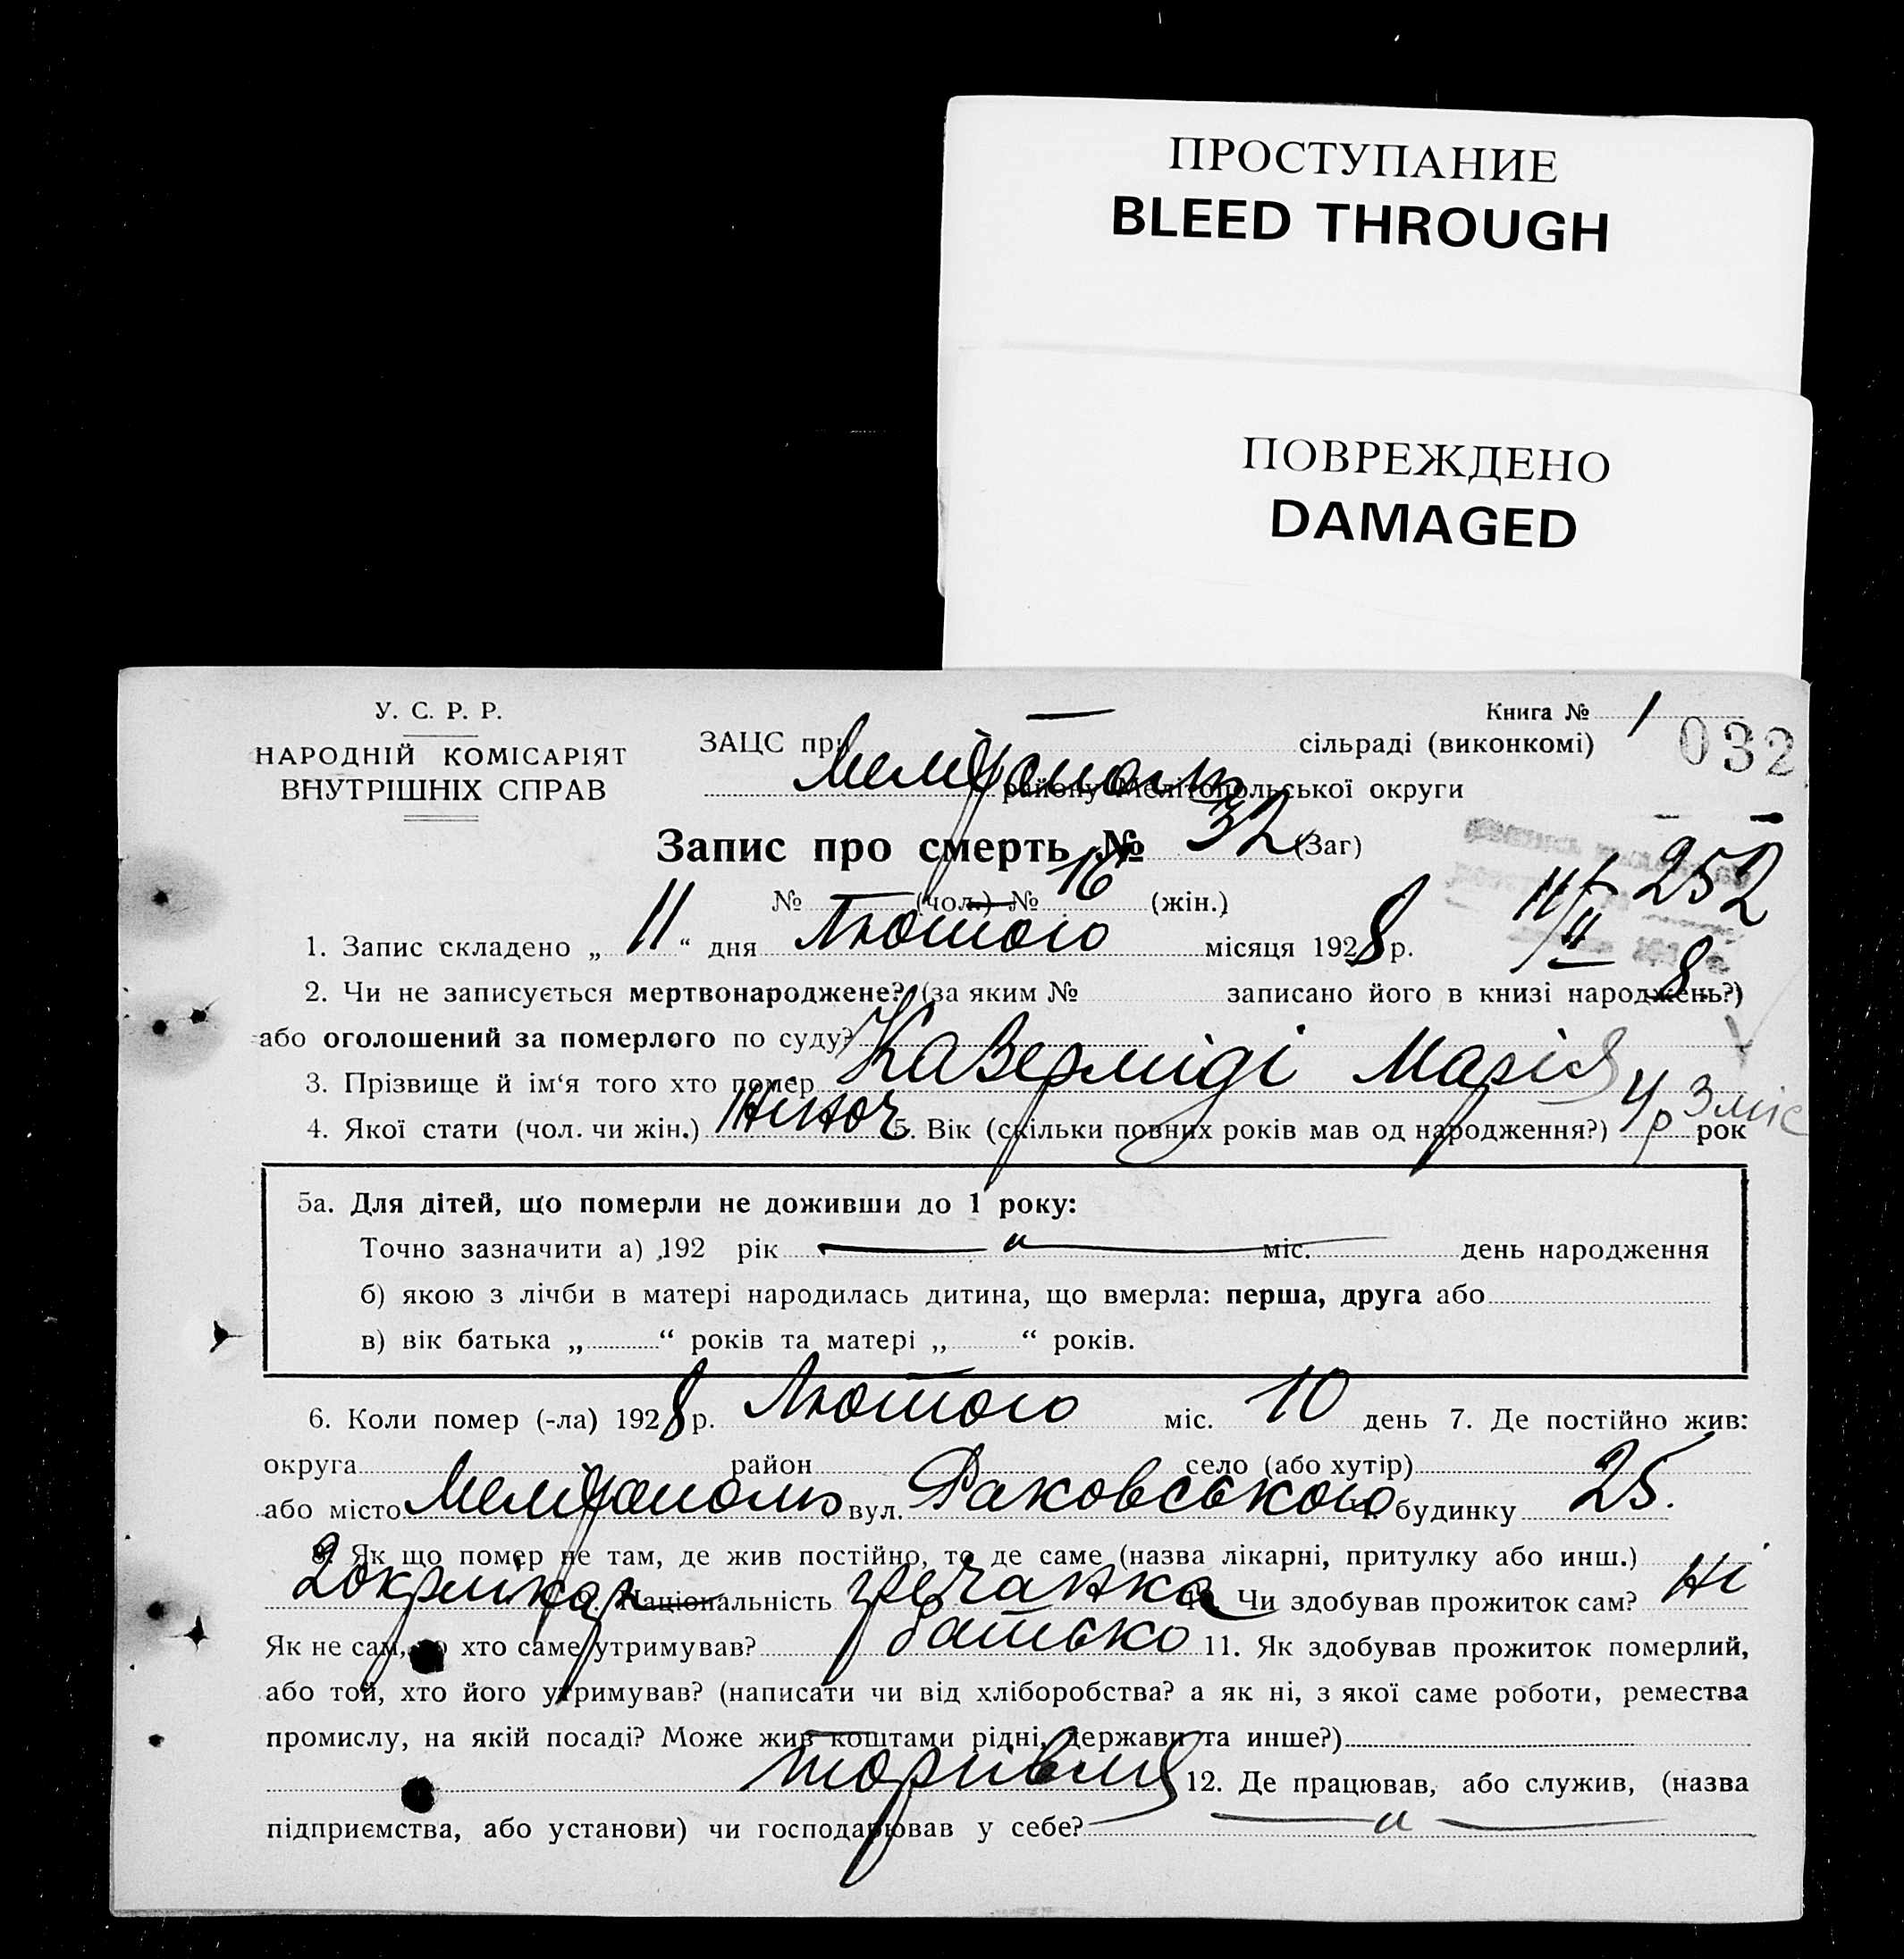 ПРОСТУПАНИЕ
BLEED THROUGH
ПОВРЕЖДЕНО
DAMAGED
У. С. Р. Р.
НАРОДНІЙ КОМІСАРІЯТ
ВНУТРІШНІХ СПРАВ
Книга № 1
032
ЗАЦС при сільраді (виконкомі)
Мелітополь району Мелітопольської округи
Запис про смерть № 32 (Заг)
252
№ (чол.) № 16 (жін.)
11/II 8
1. Запис складено „ 11 “ дня Лютого місяця 1928 р.
2. Чи не записується мертвонароджене? (за яким № записано його в книзі народжень?)
або оголошений за померлого по суду?
3. Прізвище й ім‘я того хто помер Каверміді Марія
4. Якої стати (чол. чи жін.) жіноч 5. Вік (скільки повних років мав од народження?) 4 р 3 міс рок
5а. Для дітей, що померли не доживши до 1 року:
Точно зазначити а) 192 рік міс. день народження
б) якою з лічби в матері народилась дитина, що вмерла: перша, друга або
в) вік батька „ “ років та матері „ “ років.
6. Коли помер (-ла) 1928 р. Лютого міс. 10 день 7. Де постійно жив:
округа район село (або хутір)
або місто Мелітополь вул. Раковського будинку 25.
8. Як що помер не там, де жив постійно, то де саме (назва лікарні, притулку або инш.)
Національність гречанка 10. Чи здобував прожиток сам? Ні
Як не сам, то хто саме утримував? батько 11. Як здобував прожиток померлий,
або той, хто його утримував? (написати чи від хліборобства? а як ні, з якої саме роботи, ремества
промислу, на якій посаді? Може жив коштами рідні, держави та инше?)
торгівля 12. Де працював, або служив, (назва
підприємства, або установи) чи господарював у себе?